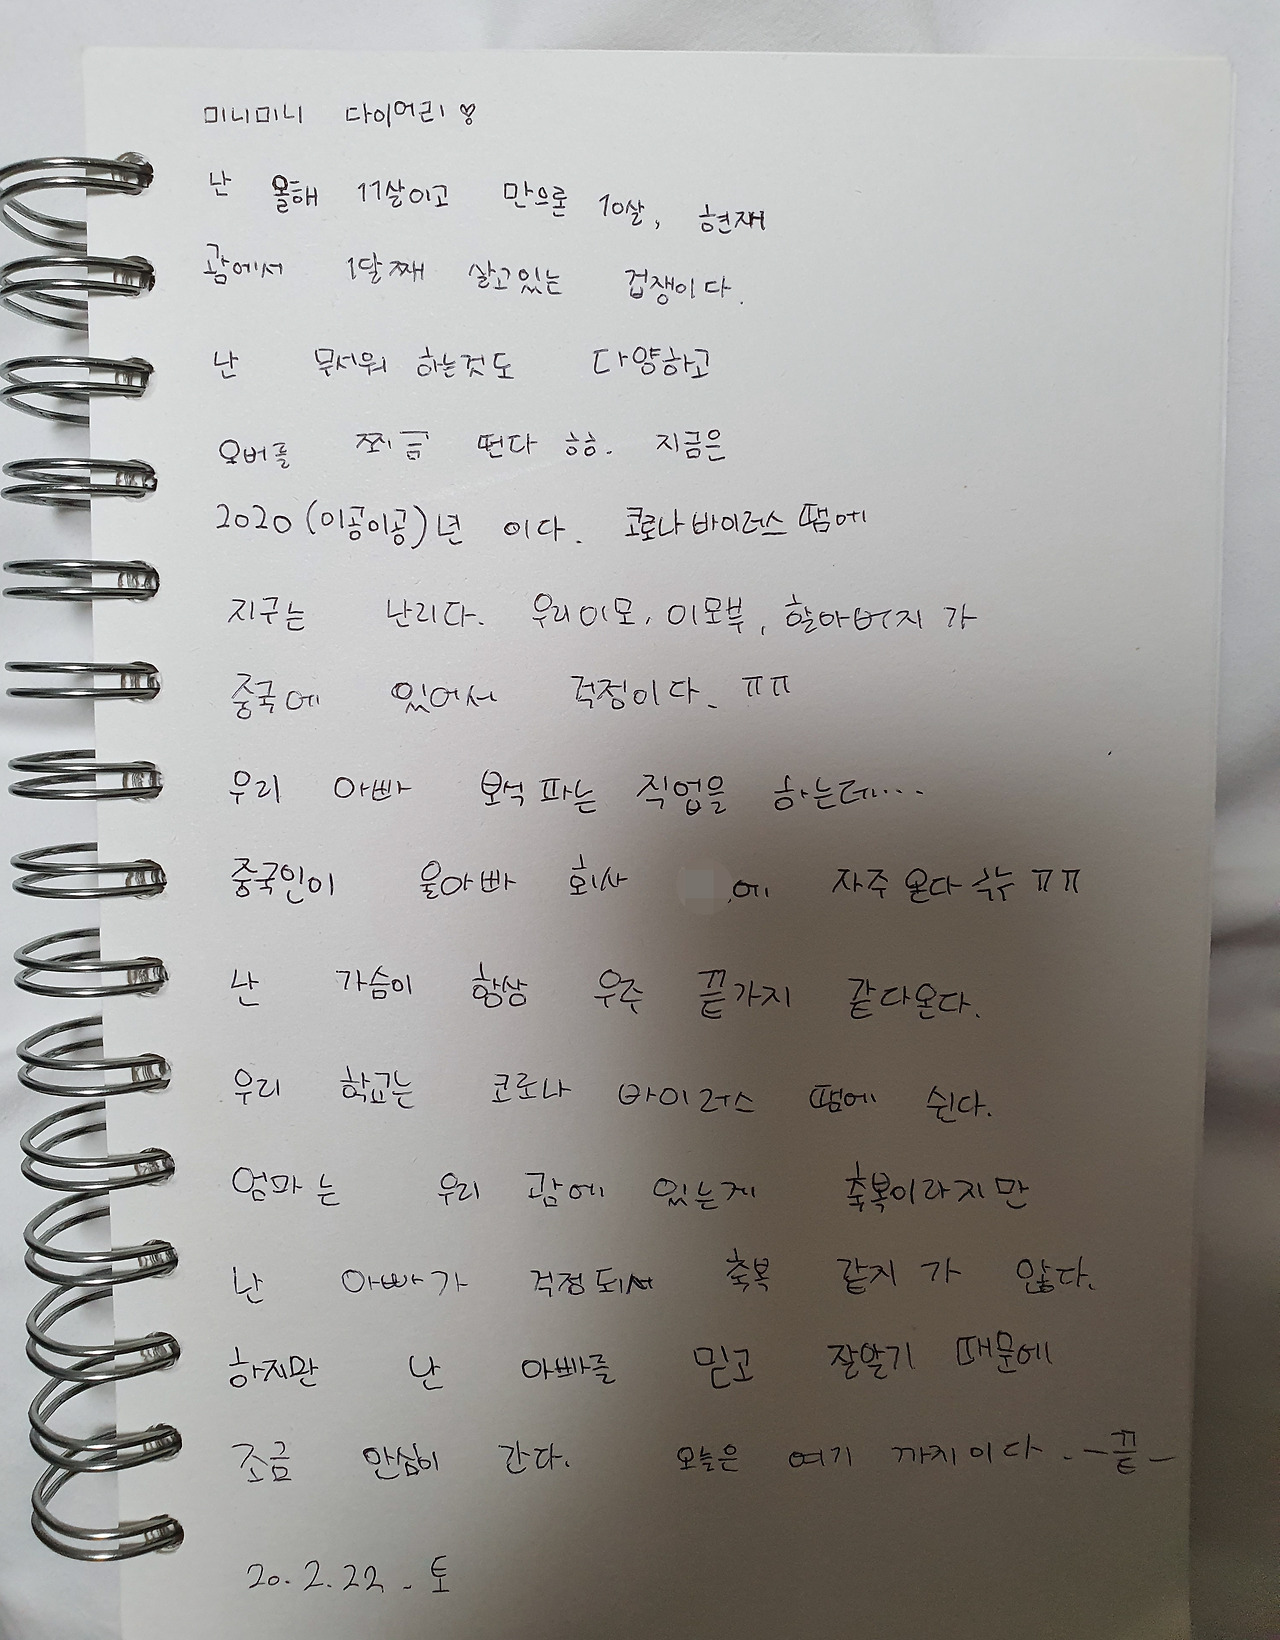 미니미니 다이어리♡
난 올해 11살이고 만으론 10살, 현재
괌에서 1달째 살고있는 겁쟁이다.
난 무서워 하는것도 다양하고
오버를 쬐금 떤다 흐흐. 지금은
2020(이공이공)년 이다. 코로나바이러스 땜에
지구는 난리다. 우리이모, 이모부, 할아버지가
중국에 있어서 걱정이다. ㅠㅠ
우리 아빠 보석파는 직업을 하는데...
중국인이 울아빠 회사 에 자주온다 ㅠㅠ
난 가슴이 항상 우주 끝가지 같다온다.
우리 학교는 코로나 바이러스 땜에 쉰다.
엄마는 우리 괌에 있는게 축복이라지만
난 아빠가 걱정되서 축복 같지가 않다.
하지만 난 아빠를 믿고 잘알기 때문에
조금 안심이 간다. 오늘은 여기 까지이다. -끝-
20.2.22.토